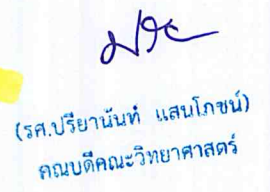 (รศ.ปรียานันท์ แสนโภชน์)
คณบดีคณะวิทยาศาสตร์